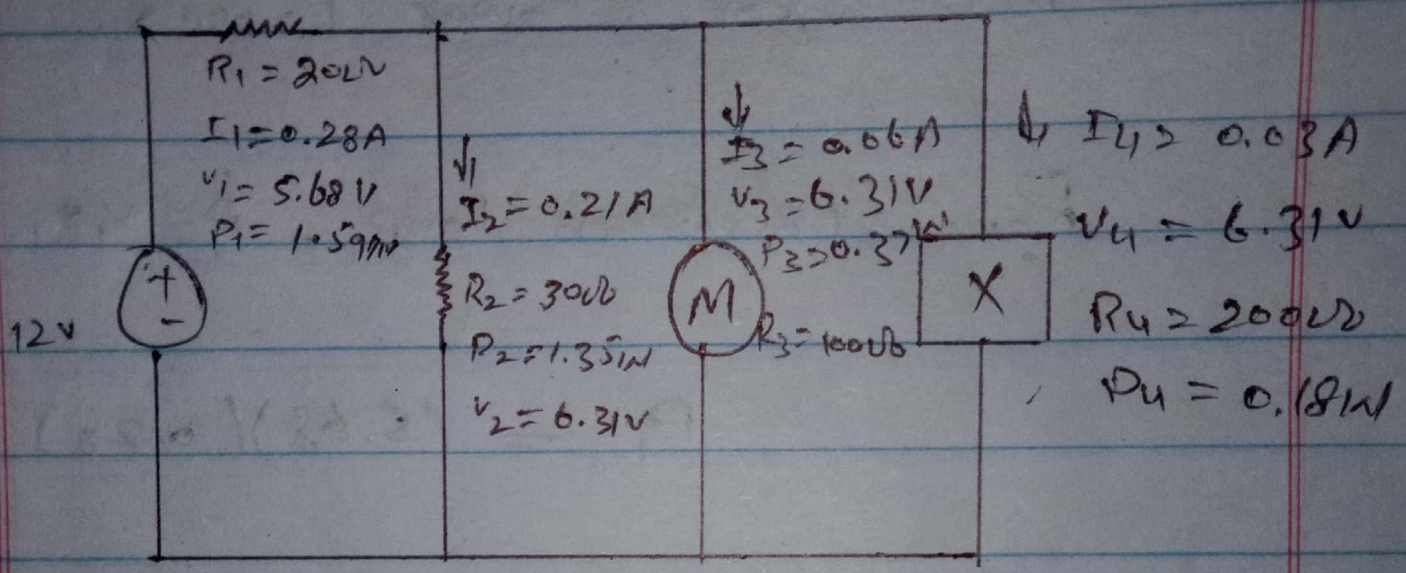 R₁ = 20Ω
I₁ = 0.28A
V₁ = 5.68V
P₁ = 1.59W
12V
+
-
↓
I₂ = 0.21A
R₂ = 30Ω
P₂ = 1.35W
V₂ = 6.31V
↓
I₃ = 0.06A
V₃ = 6.31V
P₃ = 0.37W
M
R₃ = 100Ω
X
↓ I₄ = 0.03A
V₄ = 6.31V
R₄ = 200Ω
P₄ = 0.18W